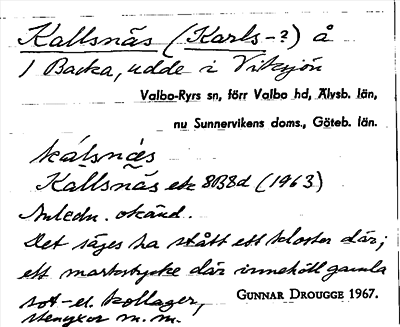 Kallsnäs (Karls-?) å
1 Backa, udde i Viksjön
Valbo-Ryrs sn, förr Valbo hd, Älvsb. län,
nu Sunnervikens doms., Göteb. län.
kálsnä̀s
Kallsnäs ek 8B8d (1963)
Anledn. okänd.
Det säges ha stått ett kloster där;
ett markstycke där innehöll gamla
sot- el. kollager,
stenyxor m.m.
GUNNAR DROUGGE 1967.